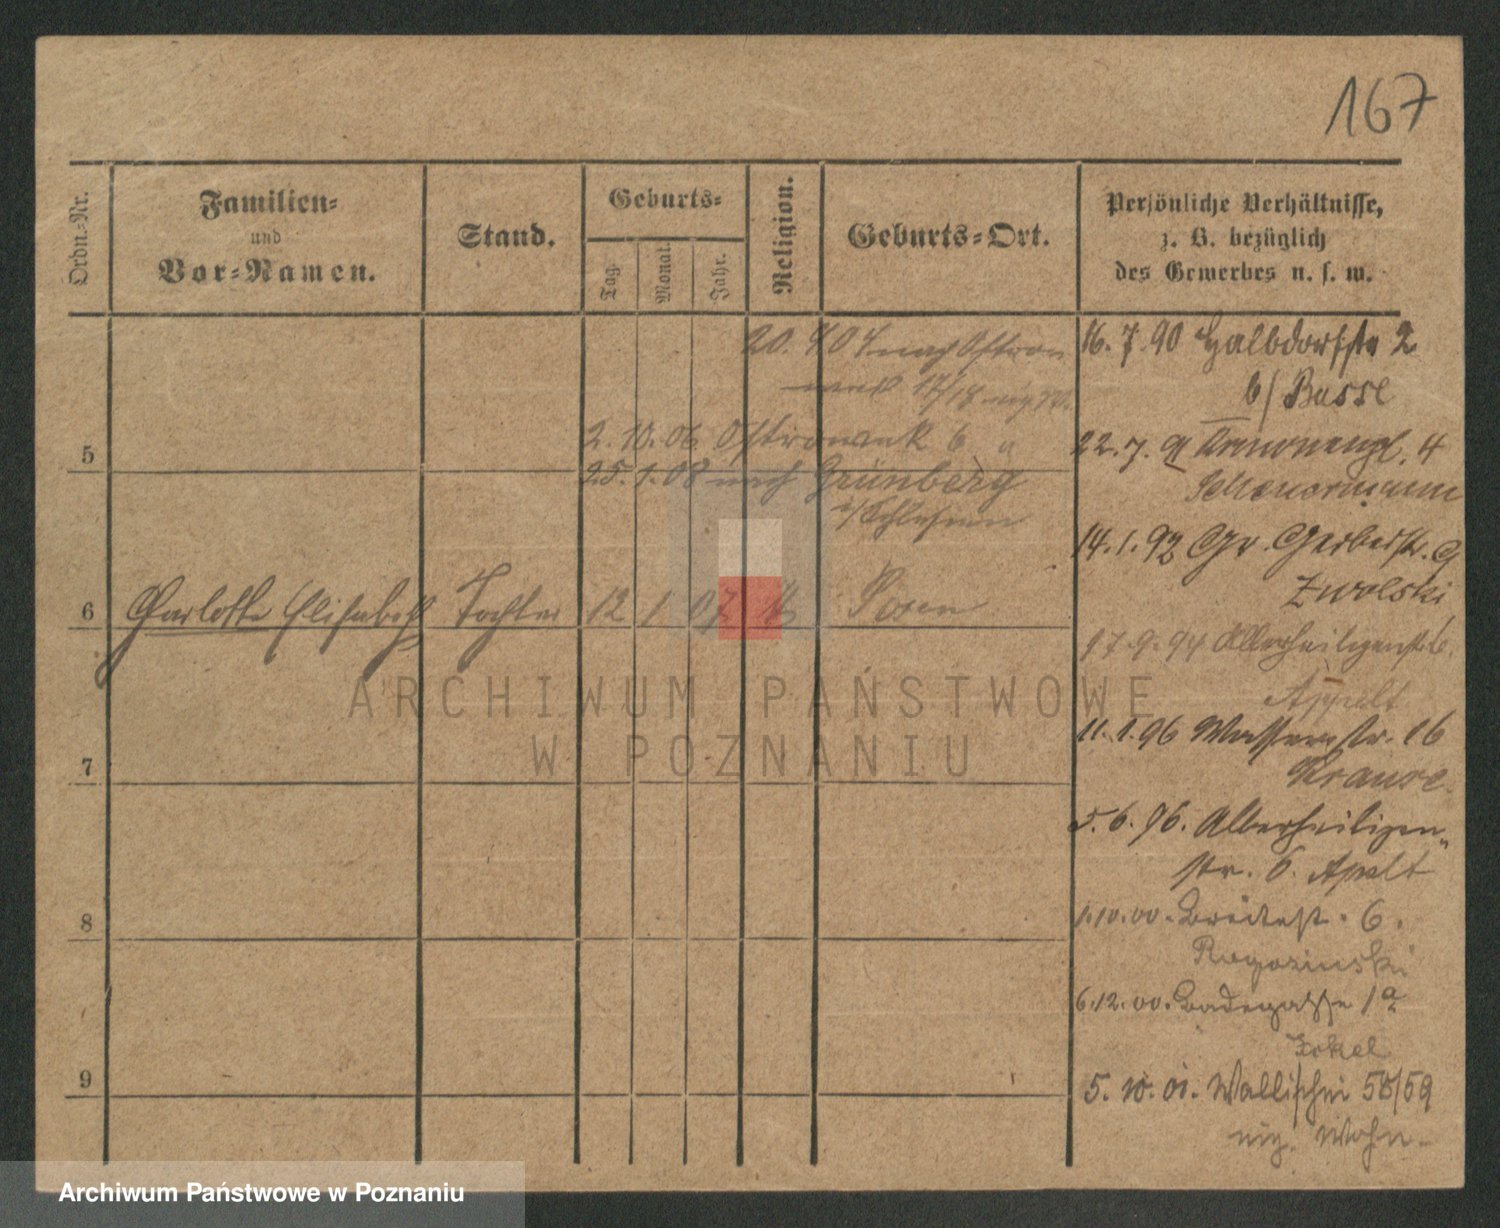 167
Ordn.-Nr.
Familien-
und
Vor-Namen.
Stand.
Geburts-
Tag.
Monat.
Jahr.
Religion.
Geburts-Ort.
Persönliche Verhältnisse,
z. B. bezüglich
des Gewerbes u. s. w.
20. nach Ostrow
17/18
2. 10. 06 Ostrowek 6
25. 1. 08 nach Grünberg
i/Schlesien
5
6 Charlotte Elisabeth Tochter 12 1 07 Posen
7
8
9
16. 7. 90 Halbdorfstr 2
b/ Busse
22. 7. 91 4
14. 1. 92 Gr. Gerberstr. 9
Zwolski
17. 9. 94 Allerheiligenstr. 6.
Appelt
11. 1. 96 Wasserstr. 16
Krause.
5. 6. 96. Allerheiligen-
str. 6. Apelt
1.10.00. Breitestr. 6.
Rogozinski
6.12.00. Badegasse 1a
Jokel
5. 10. 01. Wallischei 58/59
eig. Wohn.
ARCHIWUM PAŃSTWOWE
W POZNANIU
Archiwum Państwowe w Poznaniu